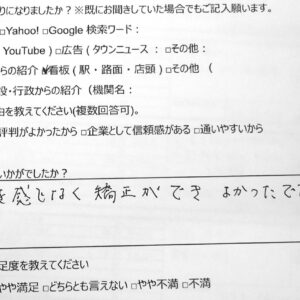 りになりましたか？※既にお聞きしていた場合でもご記入願います。
□Yahoo! □Google 検索ワード：
YouTube ) □広告 ( タウンニュース ： □その他：
らの紹介 ☑看板 ( 駅・路面・店頭 ) □その他 （
役・行政からの紹介（機関名：
由を教えてください(複数回答可)。
評判がよかったから □企業として信頼感がある □通いやすいから
いかがでしたか？
を感じなく 矯正が でき よかったで
足度を教えてください
やや満足 □どちらとも言えない □やや不満 □不満